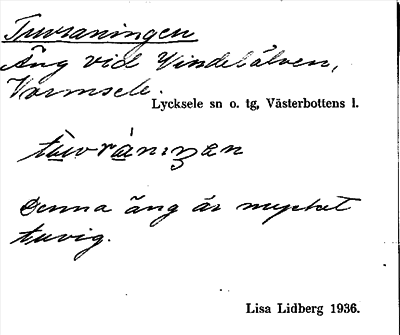 Tuvraningen
Äng vid Vindelälven,
Vormsele.
Lycksele sn o. tg, Västerbottens l.
Denna äng är mycket
tuvig.
Lisa Lidberg 1936.